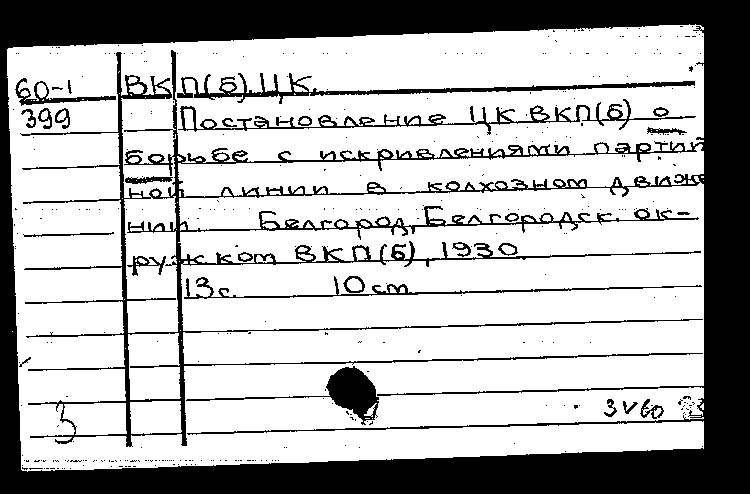 60-1 ВКП(б). ЦК.
399 Постановление ЦК ВКП(б) о
борьбе с искривлениями партий
ной линии в колхозном движе
нии. Белгород, Белгородск. ок-
ружком ВКП(б), 1930.
13с. 10 cm
3 3 V 60